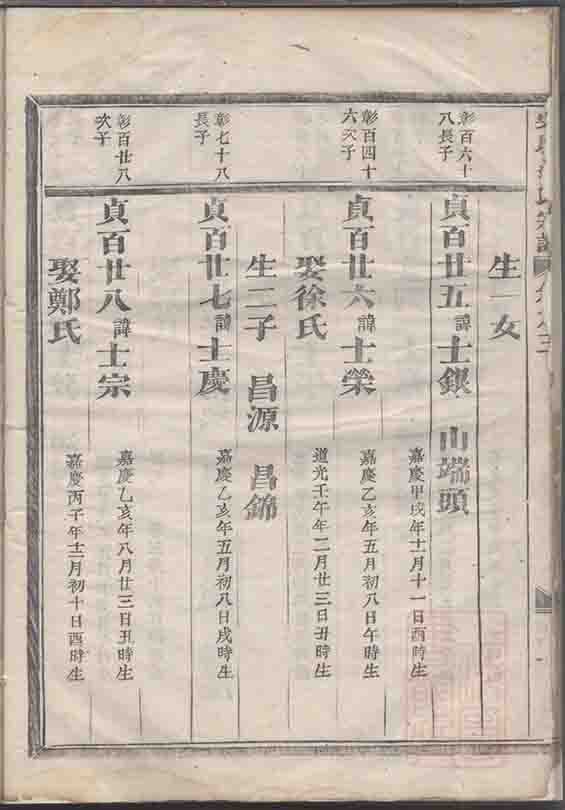 生一女
彰百六十
八長子
貞百廿五諱士鋇 山端頭
嘉慶甲戌年十一月十一日酉時生
彰百四十
六次子
貞百廿六諱士榮
嘉慶乙亥年五月初八日午時生
娶徐氏
道光壬午年二月廿三日丑時生
生二子 昌源 昌錦
彰七十八
長子
貞百廿七諱士慶
嘉慶乙亥年五月初八日戌時生
彰百廿八
次子
貞百廿八諱士宗
嘉慶乙亥年八月廿三日丑時生
娶鄭氏
嘉慶丙子年十二月初十日酉時生